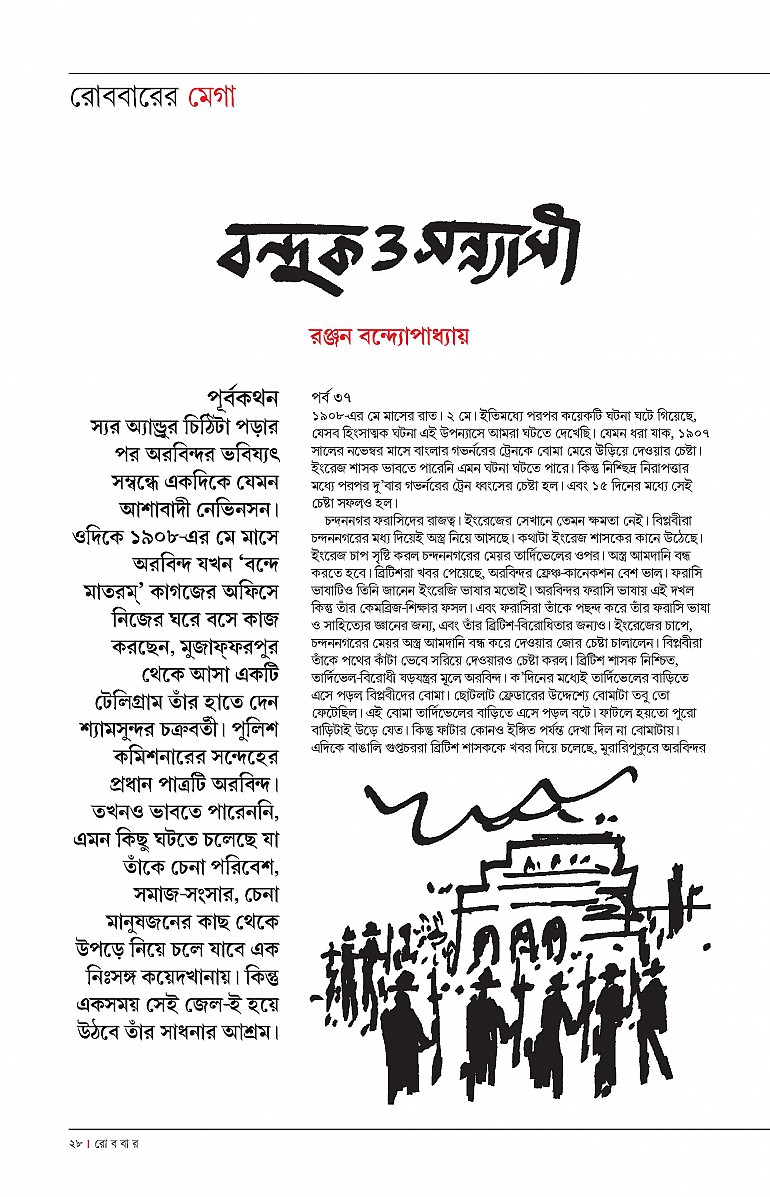 রোববারের মেগা
বন্দুক ও সন্ন্যাসী
রঞ্জন বন্দ্যোপাধ্যায়
পূর্বকথন
স্যর অ্যান্ড্রুর চিঠিটা পড়ার
পর অরবিন্দর ভবিষ্যৎ
সম্বন্ধে একদিকে যেমন
আশাবাদী নেভিনসন।
ওদিকে ১৯০৮-এর মে মাসে
অরবিন্দ যখন ‘বন্দে
মাতরম্’ কাগজের অফিসে
নিজের ঘরে বসে কাজ
করছেন, মুজাফ্ফরপুর
থেকে আসা একটি
টেলিগ্রাম তাঁর হাতে দেন
শ্যামসুন্দর চক্রবর্তী। পুলিশ
কমিশনারের সন্দেহের
প্রধান পাত্রটি অরবিন্দ।
তখনও ভাবতে পারেননি,
এমন কিছু ঘটতে চলেছে যা
তাঁকে চেনা পরিবেশ,
সমাজ-সংসার, চেনা
মানুষজনের কাছ থেকে
উপড়ে নিয়ে চলে যাবে এক
নিঃসঙ্গ কয়েদখানায়। কিন্তু
একসময় সেই জেল-ই হয়ে
উঠবে তাঁর সাধনার আশ্রম।
পর্ব ৩৭
১৯০৮-এর মে মাসের রাত। ২ মে। ইতিমধ্যে পরপর কয়েকটি ঘটনা ঘটে গিয়েছে,
যেসব হিংসাত্মক ঘটনা এই উপন্যাসে আমরা ঘটতে দেখেছি। যেমন ধরা যাক, ১৯০৭
সালের নভেম্বর মাসে বাংলার গভর্নরের ট্রেনকে বোমা মেরে উড়িয়ে দেওয়ার চেষ্টা।
ইংরেজ শাসক ভাবতে পারেনি এমন ঘটনা ঘটতে পারে। কিন্তু নিশ্ছিদ্র নিরাপত্তার
মধ্যে পরপর দু’বার গভর্নরের ট্রেন ধ্বংসের চেষ্টা হল। এবং ১৫ দিনের মধ্যে সেই
চেষ্টা সফলও হল।
চন্দননগর ফরাসিদের রাজত্ব। ইংরেজের সেখানে তেমন ক্ষমতা নেই। বিপ্লবীরা
চন্দননগরের মধ্য দিয়েই অস্ত্র নিয়ে আসছে। কথাটা ইংরেজ শাসকের কানে উঠেছে।
ইংরেজ চাপ সৃষ্টি করল চন্দননগরের মেয়র তার্দিভেলের ওপর। অস্ত্র আমদানি বন্ধ
করতে হবে। ব্রিটিশরা খবর পেয়েছে, অরবিন্দর ফ্রেঞ্চ-কানেকশন বেশ ভাল। ফরাসি
ভাষাটিও তিনি জানেন ইংরেজি ভাষার মতোই। অরবিন্দর ফরাসি ভাষায় এই দখল
কিন্তু তাঁর কেমব্রিজ-শিক্ষার ফসল। এবং ফরাসিরা তাঁকে পছন্দ করে তাঁর ফরাসি ভাষা
ও সাহিত্যের জ্ঞানের জন্য, এবং তাঁর ব্রিটিশ-বিরোধিতার জন্যও। ইংরেজের চাপে,
চন্দননগরের মেয়র অস্ত্র আমদানি বন্ধ করে দেওয়ার জোর চেষ্টা চালালেন। বিপ্লবীরা
তাঁকে পথের কাঁটা ভেবে সরিয়ে দেওয়ারও চেষ্টা করল। ব্রিটিশ শাসক নিশ্চিত,
তার্দিভেল-বিরোধী ষড়যন্ত্রর মূলে অরবিন্দ। ক’দিনের মধ্যেই তার্দিভেলের বাড়িতে
এসে পড়ল বিপ্লবীদের বোমা। ছোটলাট ফ্রেডারের উদ্দেশ্যে বোমাটা তবু তো
ফেটেছিল। এই বোমা তার্দিভেলের বাড়িতে এসে পড়ল বটে। ফাটলে হয়তো পুরো
বাড়িটাই উড়ে যেত। কিন্তু ফাটার কোনও ইঙ্গিত পর্যন্ত দেখা দিল না বোমাটায়।
এদিকে বাঙালি গুপ্তচররা ব্রিটিশ শাসককে খবর দিয়ে চলেছে, মুরারিপুকুরে অরবিন্দর
২৮ । রো ব বা র